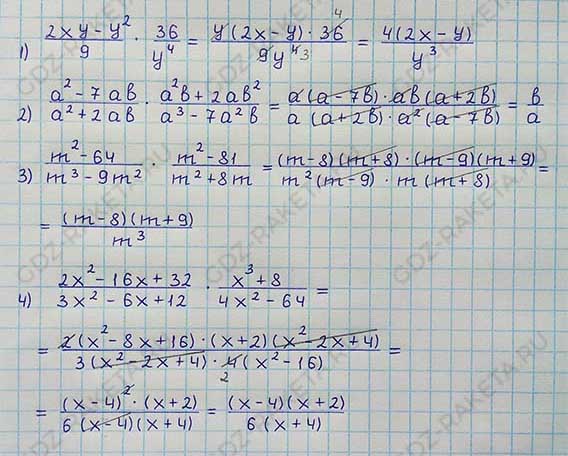 1) (2xy - y²)/9 · 36/y⁴ = (y(2x - y) · 36 4)/(9y⁴ 3) = (4(2x - y))/y³
2) (a² - 7ab)/(a² + 2ab) · (a²b + 2ab²)/(a³ - 7a²b) = (a(a - 7b) · ab(a + 2b))/(a(a + 2b) · a²(a - 7b)) = b/a
3) (m² - 64)/(m³ - 9m²) · (m² - 81)/(m² + 8m) = ((m - 8)(m + 8) · (m - 9)(m + 9))/(m²(m - 9) · m(m + 8)) =
= ((m - 8)(m + 9))/m³
4) (2x² - 16x + 32)/(3x² - 6x + 12) · (x³ + 8)/(4x² - 64) =
= (2(x² - 8x + 16) · (x + 2)(x² - 2x + 4))/(3(x² - 2x + 4) · 4 2(x² - 16)) =
= ((x - 4)² · (x + 2))/(6(x - 4)(x + 4)) = ((x - 4)(x + 2))/(6(x + 4))
GDZ-RAKETA.RU